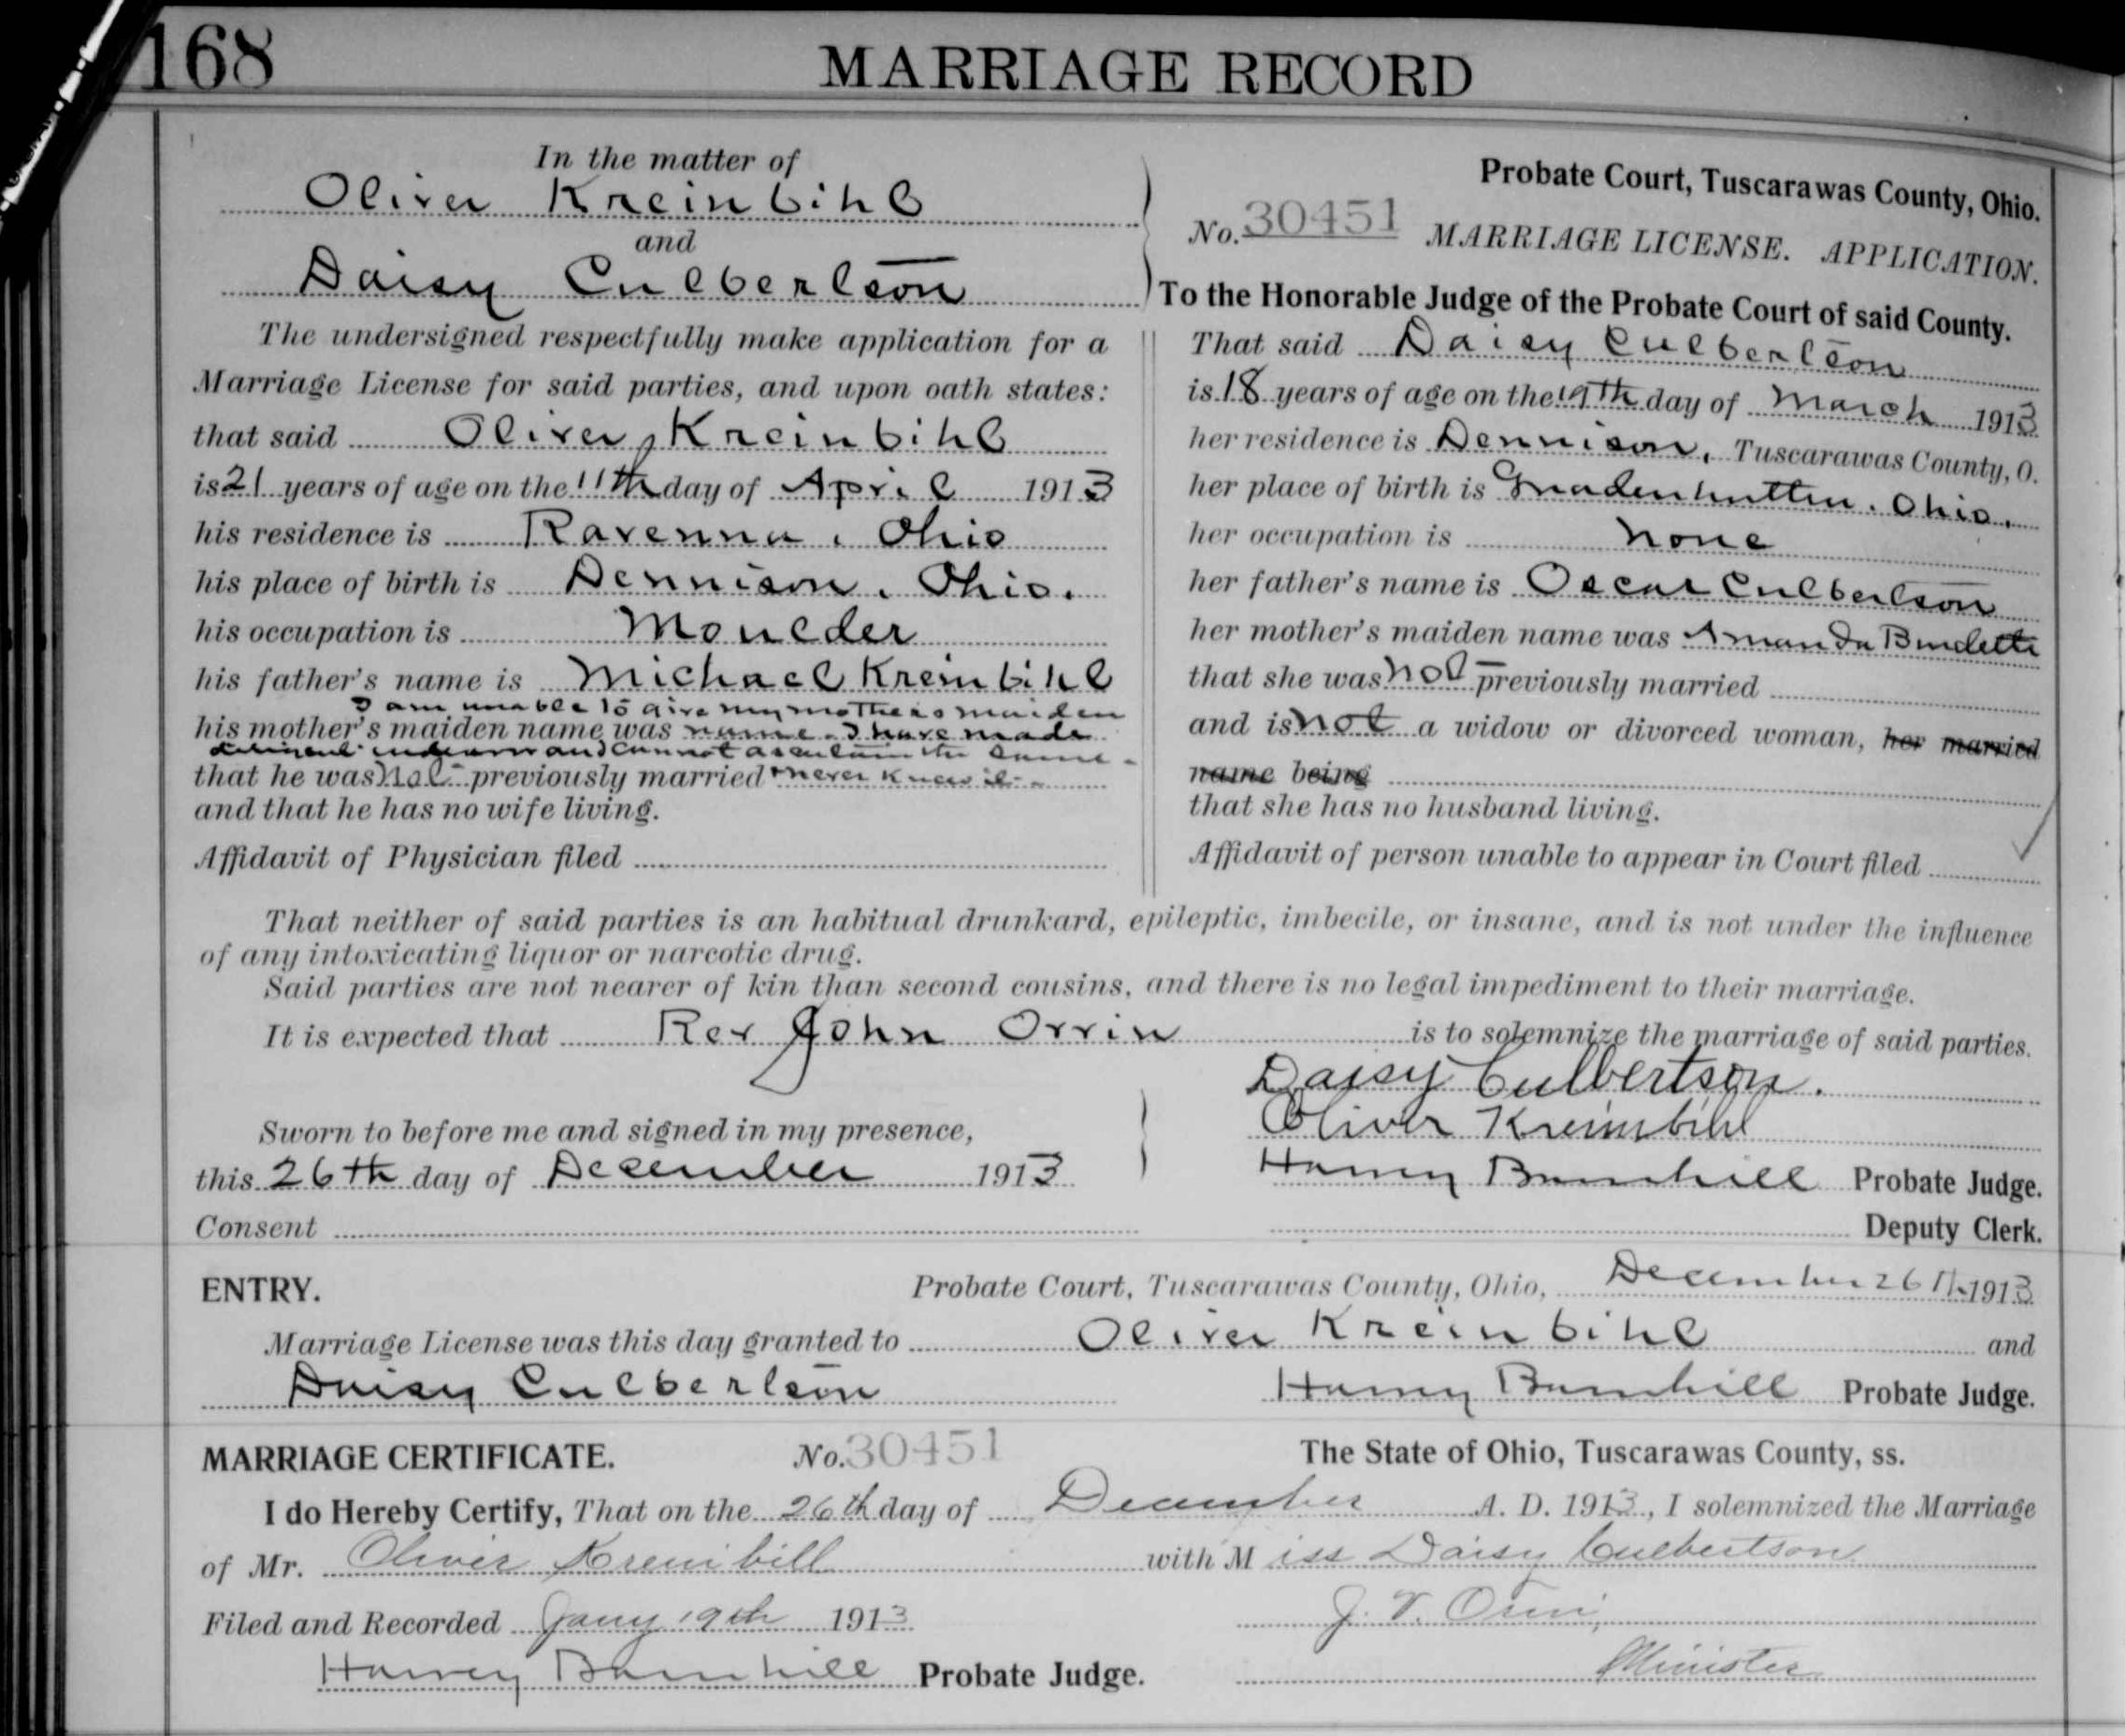 168
MARRIAGE RECORD
In the matter of
Oliver Kreinbihl
and
Daisy Culbertson
Probate Court, Tuscarawas County, Ohio.
No. 30451 MARRIAGE LICENSE. APPLICATION.
To the Honorable Judge of the Probate Court of said County.
The undersigned respectfully make application for a
Marriage License for said parties, and upon oath states:
that said Oliver Kreinbihl
is 21 years of age on the 11th day of April 1913
his residence is Ravenna, Ohio
his place of birth is Dennison, Ohio.
his occupation is Moulder
his father's name is Michael Kreinbihl
I am unable to give my mothers maiden
his mother's maiden name was name. I have made
diligent and cannot ascertain the same.
that he was not previously married never knew it.
and that he has no wife living.
Affidavit of Physician filed
That said Daisy Culbertson
is 18 years of age on the 19th day of March 1913
her residence is Dennison, Tuscarawas County, O.
her place of birth is Gnadenhutten, Ohio.
her occupation is none
her father's name is Oscar Culbertson
her mother's maiden name was Amanda
that she was not previously married
and is not a widow or divorced woman, her married
name being
that she has no husband living.
Affidavit of person unable to appear in Court filed
That neither of said parties is an habitual drunkard, epileptic, imbecile, or insane, and is not under the influence
of any intoxicating liquor or narcotic drug.
Said parties are not nearer of kin than second cousins, and there is no legal impediment to their marriage.
It is expected that Rev John Orrin is to solemnize the marriage of said parties.
Daisy Culbertson.
Oliver Kreinbihl
Sworn to before me and signed in my presence,
this 26th day of December 1913
Harvey Barnhill Probate Judge.
Consent
Deputy Clerk.
ENTRY. Probate Court, Tuscarawas County, Ohio, December 26th 1913
Marriage License was this day granted to Oliver Kreinbihl and
Daisy Culbertson Harvey Barnhill Probate Judge.
MARRIAGE CERTIFICATE. No. 30451 The State of Ohio, Tuscarawas County, ss.
I do Hereby Certify, That on the 26th day of December A. D. 1913, I solemnized the Marriage
of Mr. Oliver Kreinbill with Miss Daisy Culbertson
J. V. Orrin,
Filed and Recorded Jany 19th 1913
Minister
Harvey Barnhill Probate Judge.